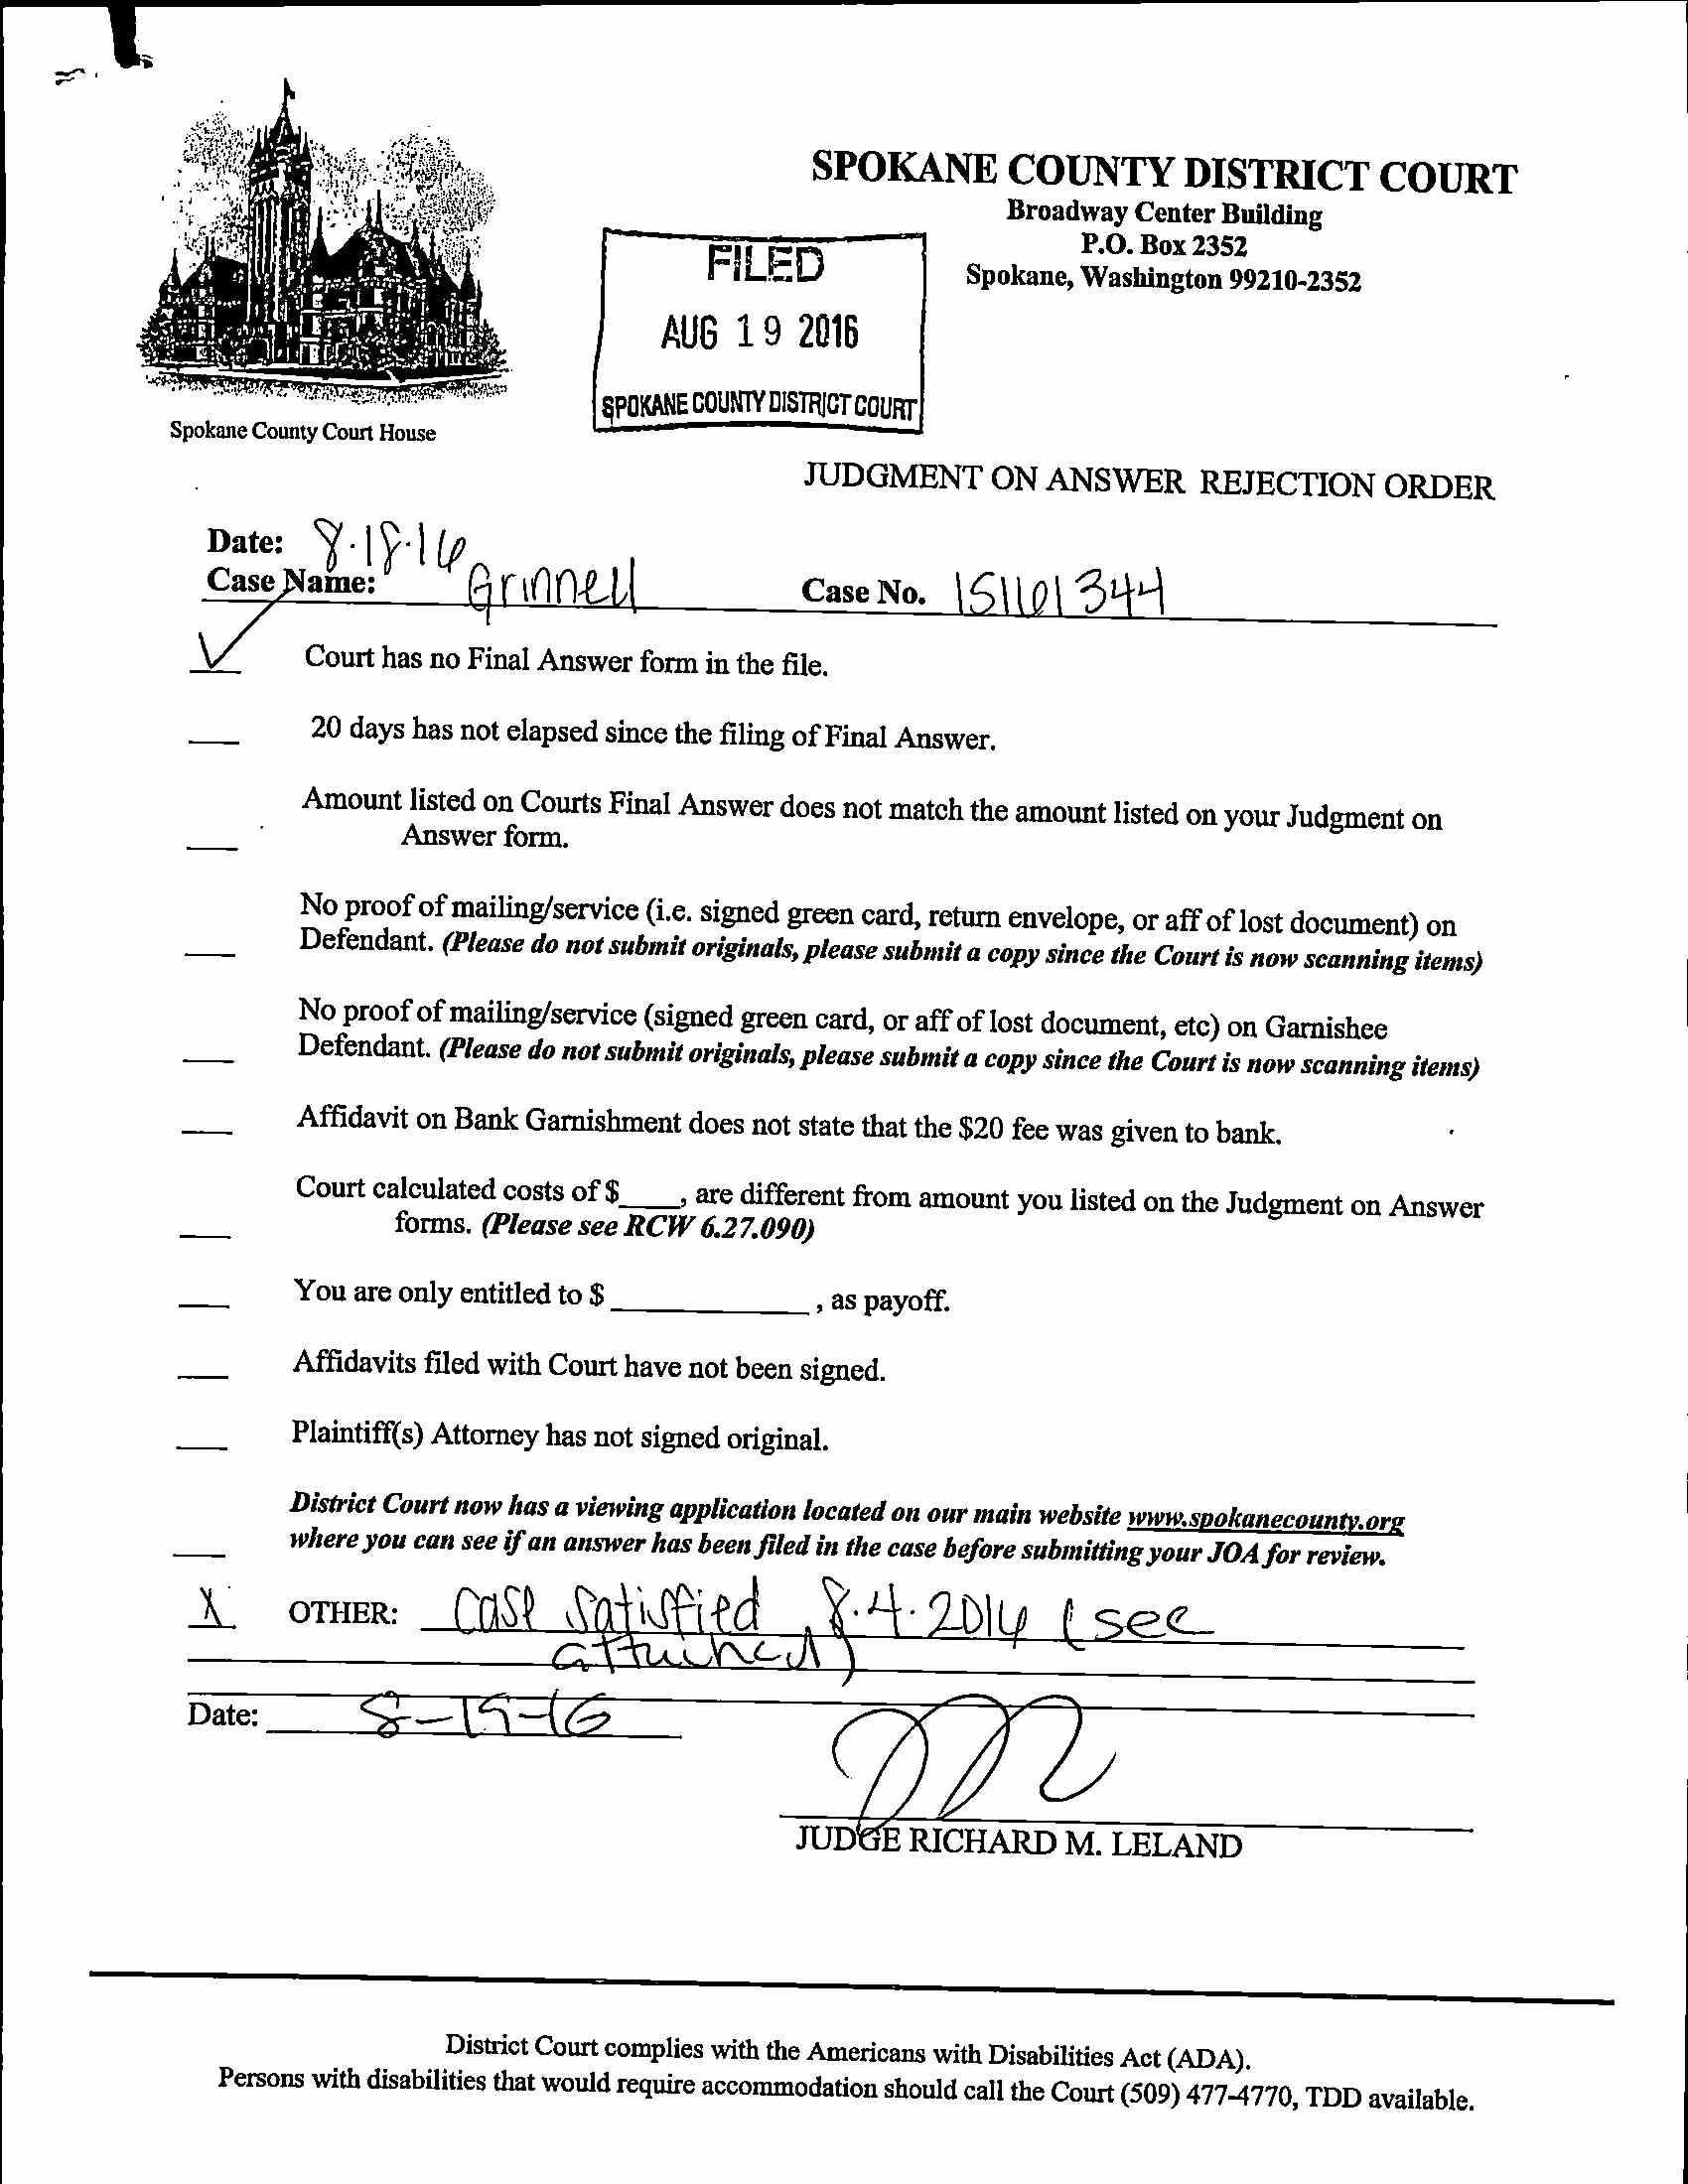 SPOKANE COUNTY DISTRICT COURT
Broadway Center Building
P.O. Box 2352
Spokane, Washington 99210-2352
FILED
AUG 19 2016
SPOKANE COUNTY DISTRICT COURT
Spokane County Court House
JUDGMENT ON ANSWER REJECTION ORDER
Date: 8.18.16
Case Name: Grinnell Case No. 15161344
Court has no Final Answer form in the file.
20 days has not elapsed since the filing of Final Answer.
Amount listed on Courts Final Answer does not match the amount listed on your Judgment on
Answer form.
No proof of mailing/service (i.e. signed green card, return envelope, or aff of lost document) on
Defendant. (Please do not submit originals, please submit a copy since the Court is now scanning items)
No proof of mailing/service (signed green card, or aff of lost document, etc) on Garnishee
Defendant. (Please do not submit originals, please submit a copy since the Court is now scanning items)
Affidavit on Bank Garnishment does not state that the $20 fee was given to bank.
Court calculated costs of $____, are different from amount you listed on the Judgment on Answer
forms. (Please see RCW 6.27.090)
You are only entitled to $ ____________, as payoff.
Affidavits filed with Court have not been signed.
Plaintiff(s) Attorney has not signed original.
District Court now has a viewing application located on our main website www.spokanecounty.org
where you can see if an answer has been filed in the case before submitting your JOA for review.
X OTHER: Case Satisfied 8.4.2016 (see
attached)
Date: 8-19-16
JUDGE RICHARD M. LELAND
District Court complies with the Americans with Disabilities Act (ADA).
Persons with disabilities that would require accommodation should call the Court (509) 477-4770, TDD available.